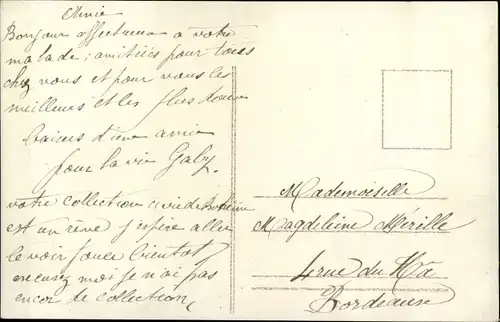 Amie
Bonjour affectueux a votre
malade; amitiées pour tous
chez vous et pour vous les
meilleurs et les plus doux
baisers d'une amie
pour la vie Gaby.
votre collection
est un rêve j'espère aller
le voir bientot
excusez moi je n'ai pas
encor de collection,
Mademoiselle
Magdeleine Mérille
4 rue du Hâ
Bordeaux